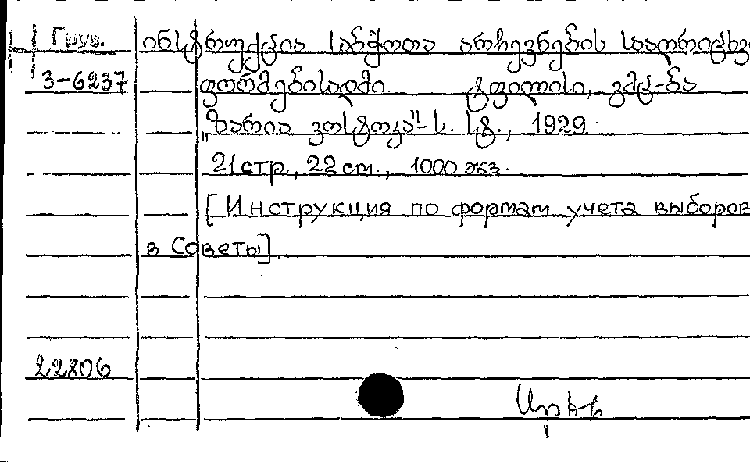 Груз. ინსტრუქცია საბჭოთა არჩევნების სააღრიცხვ
3-6237 ფორმებისადმი ტფილისი, გმც-ბა
„ზარია ვოსტოკა"-ს. სტ., 1929.
21 стр., 22 см., 1000 экз.
[Инструкция по формам учета выборов
в Советы]
22206